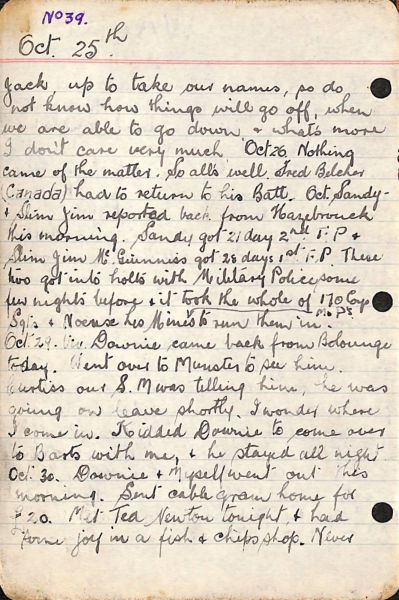 No 39.
Oct. 25th
Jack, up to take our names, so do
not know how things will go off, when
we are able to go down, & what's more
I don't care very much. Oct 26. Nothing
came of the matter. So all's well. Fred Belcher
(Canada) had to return to his Batt. Oct. Sandy
& Slim Jim reported back from Hazebrouck
this morning. Sandy got 21 day 2nd F.P. &
Slim Jim McGuinniss got 28 days 1st F.P. These
two got into holts with Military Police some
few nights before & it took the whole of 170 Coy
Sgts & Noeuse les Mines to run them in. M.P's
Oct. 29. Downie came back from Bolounge
today. Went over to Munster to see him.
Curtiss our S.M was telling him, he was
going on leave shortly. I wonder where
I come in. Kidded Downie to come over
to Barts with me, & he stayed all night
Oct. 30. Downie & Myself went out this
morning. Sent cable gram home for
£20. Met Ted Newton tonight, & had
some joy in a fish & chips shop. Never